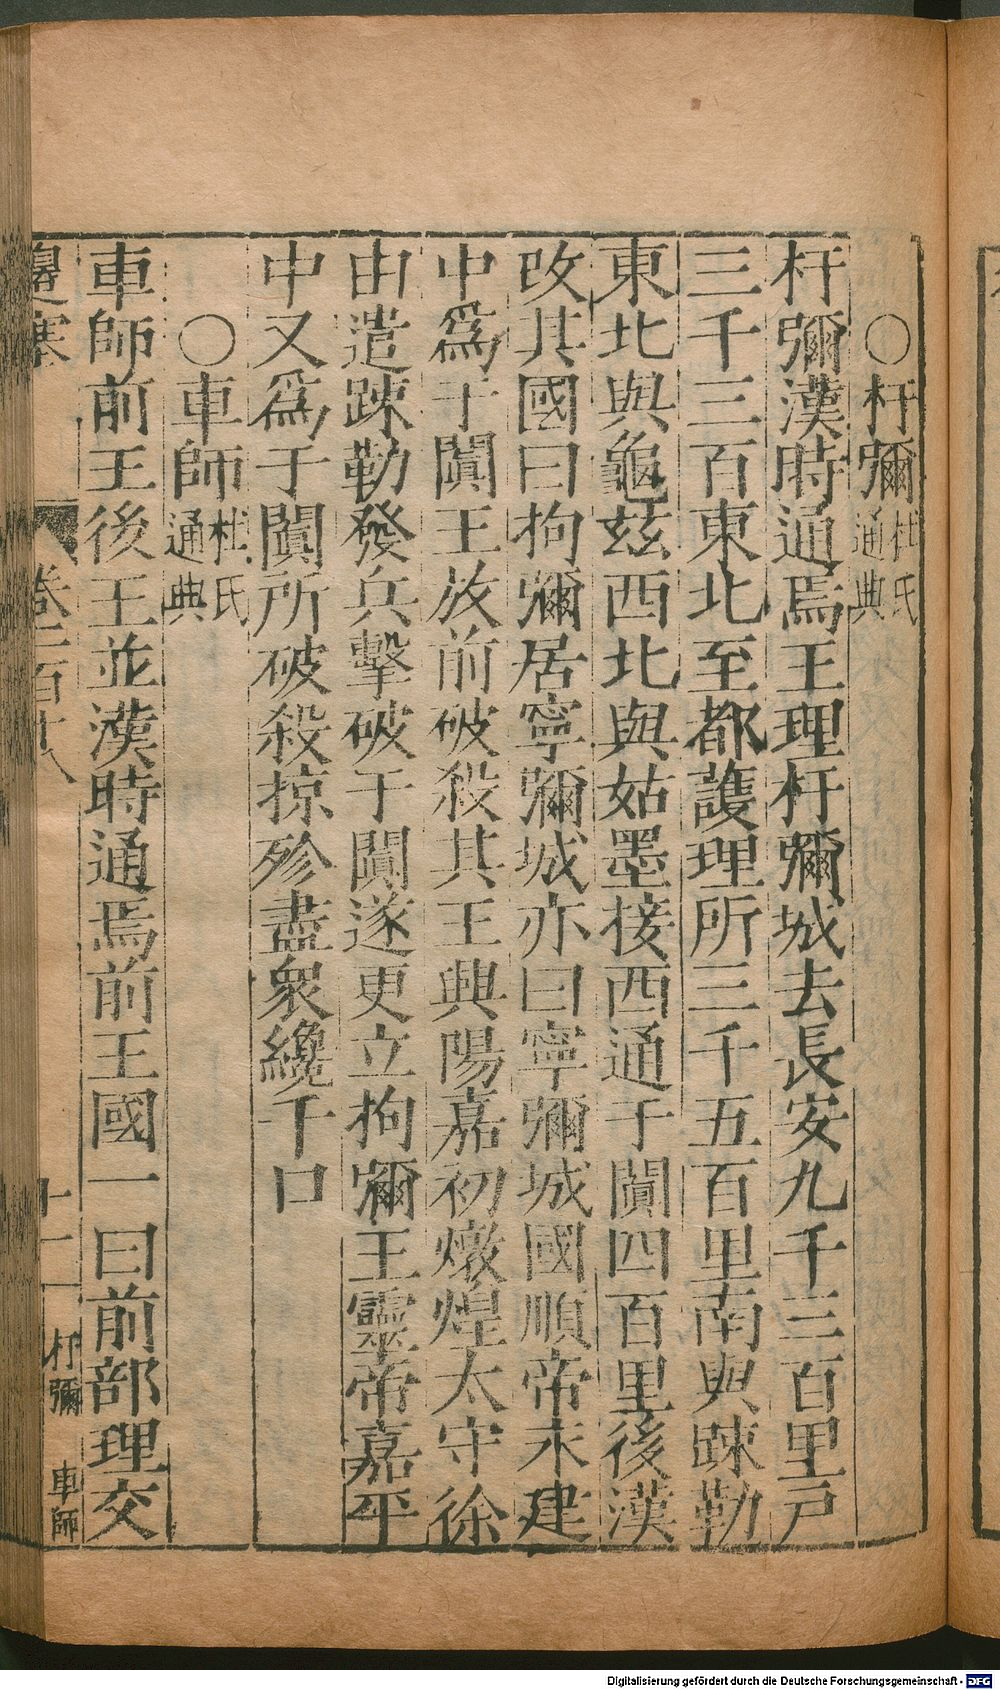 ○杆彌杜氏通典
杆彌漢時通焉王理杆彌城去長安九千三百里戸
三千三百東北至都護理所三千五百里南與踈勒
東北與龜玆西北與姑墨接西通于闐四百里後漢
改其國曰拘彌居寧彌城亦曰寧彌城國順帝永建
中爲于闐王放前破殺其王興陽嘉初燉煌太守徐
由遣踈勒發兵擊破于闐遂更立拘彌王靈帝嘉平
中又爲于闐所破殺掠殄盡衆纔千口
○車師杜氏通典
車師前王後王並漢時通焉前王國一曰前部理交
邊塞 卷三百十八 十一 杆彌 車師
Digitalisierung gefördert durch die Deutsche Forschungsgemeinschaft - DFG